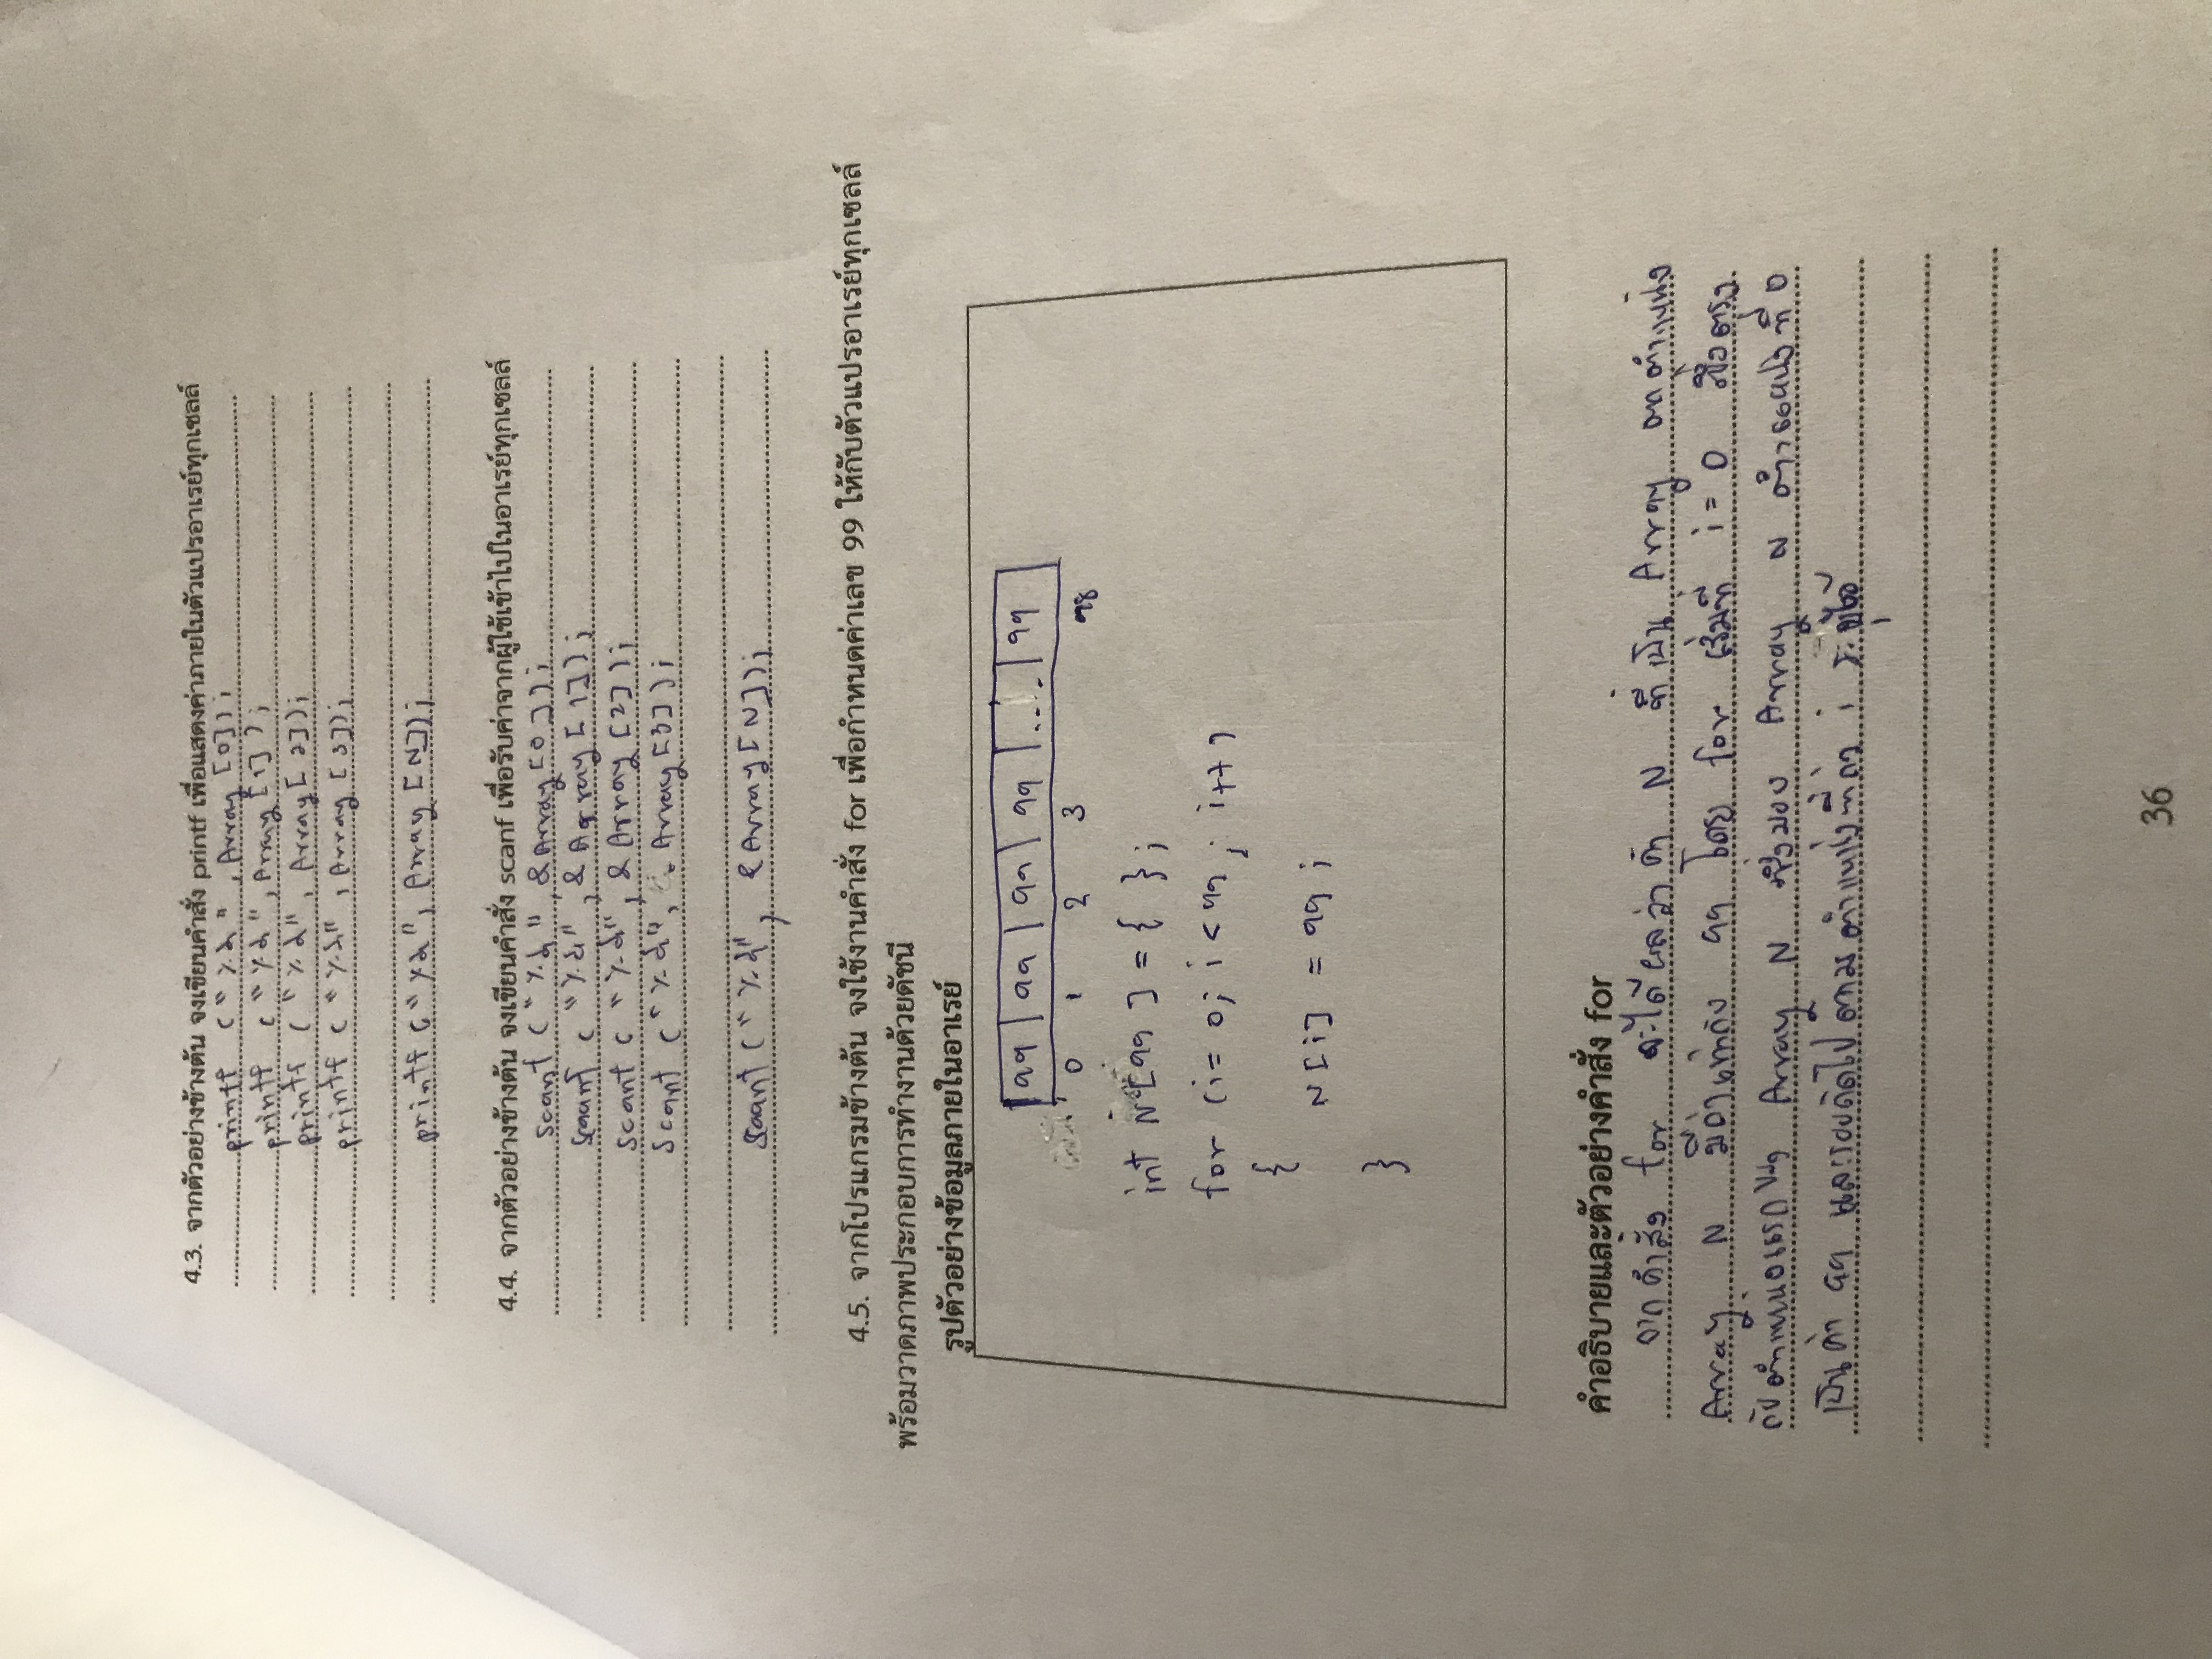 4.3. จากตัวอย่างข้างต้น จงเขียนคำสั่ง printf เพื่อแสดงค่าภายในตัวแปรอาเรย์ทุกเซลล์
printf ("%d", Array [0]);
printf ("%d", Array [1]);
printf ("%d", Array [2]);
printf ("%d", Array [3]);
printf ("%d", Array [N]);
4.4. จากตัวอย่างข้างต้น จงเขียนคำสั่ง scanf เพื่อรับค่าจากผู้ใช้เข้าไปในอาเรย์ทุกเซลล์
scanf ("%d", &Array [0]);
scanf ("%d", &Array [1]);
scanf ("%d", &Array [2]);
scanf ("%d", Array [3]);
scanf ("%d", &Array [N]);
4.5. จากโปรแกรมข้างต้น จงใช้งานคำสั่ง for เพื่อกำหนดค่าเลข 99 ให้กับตัวแปรอาเรย์ทุกเซลล์
พร้อมวาดภาพประกอบการทำงานด้วยดัชนี
รูปตัวอย่างข้อมูลภายในอาเรย์
99 99 99 99 ..... 99
0 1 2 3 98
int N[99] = { };
for (i= 0; i < 99; i++)
{
N[i] = 99;
}
คำอธิบายและตัวอย่างคำสั่ง for
จากคำสั่ง for จะได้ผลว่า ค่า N ที่เป็น Array ตำแหน่ง
Array N มีค่าเท่ากับ 99 โดย for เริ่มที่ i = 0 ซึ่งตรง
กับตำแหน่งแรกของ Array N ซึ่งมอง Array N ตำแหน่งที่ 0
เป็นค่า 99 และรอบถัดไป ตามตำแหน่งที่ค่า i ระบุไว้
36